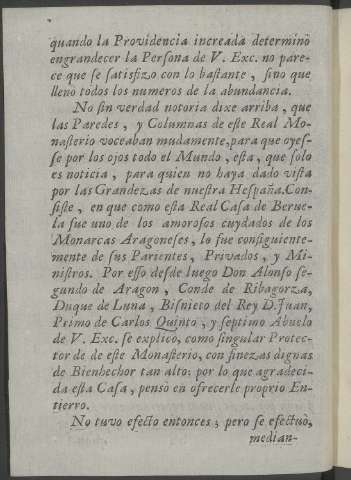 quando la Providencia increada determinò
engrandecer la Persona de V. Exc. no pare-
ce que se satisfizo con lo bastante, sino que
lleno todos los numeros de la abundancia.
No sin verdad notoria dixe arriba, que
las Paredes, y Columnas de este Real Mo-
nasterio voceaban mudamente, para que oyes-
se por los ojos todo el Mundo, esta, que solo
es noticia, para quien no haya dado vista
por las Grandezas de nuestra Hespaña. Con-
siste, en que como esta Real Casa de Berue-
la fue uno de los amorosos cuydados de los
Monarcas Aragoneses, lo fue consiguiente-
mente de sus Parientes, Privados, y Mi-
nistros. Por esso desde luego Don Alonso se-
gundo de Aragon, Conde de Ribagorza,
Duque de Luna, Bisnieto del Rey D. Juan,
Primo de Carlos Quinto, y septimo Abuelo
de V. Exc. se explicò, como singular Protec-
tor de de este Monasterio, con finezas dignas
de Bienhechor tan alto: por lo que agradeci-
da esta Casa, pensò en ofrecerle proprio En-
tierro.
No tuvo efecto entonces; pero se efectuò,
median-